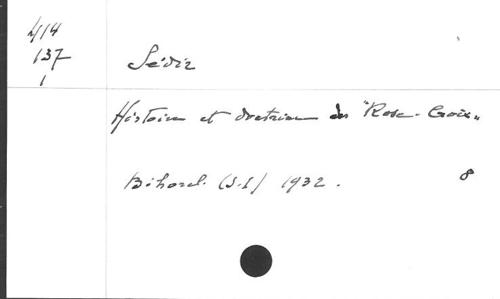 414
137
1
Sédir
Histoire et doctrine des "Rose-Croix"
Bihorel (S.I) 1932. 8